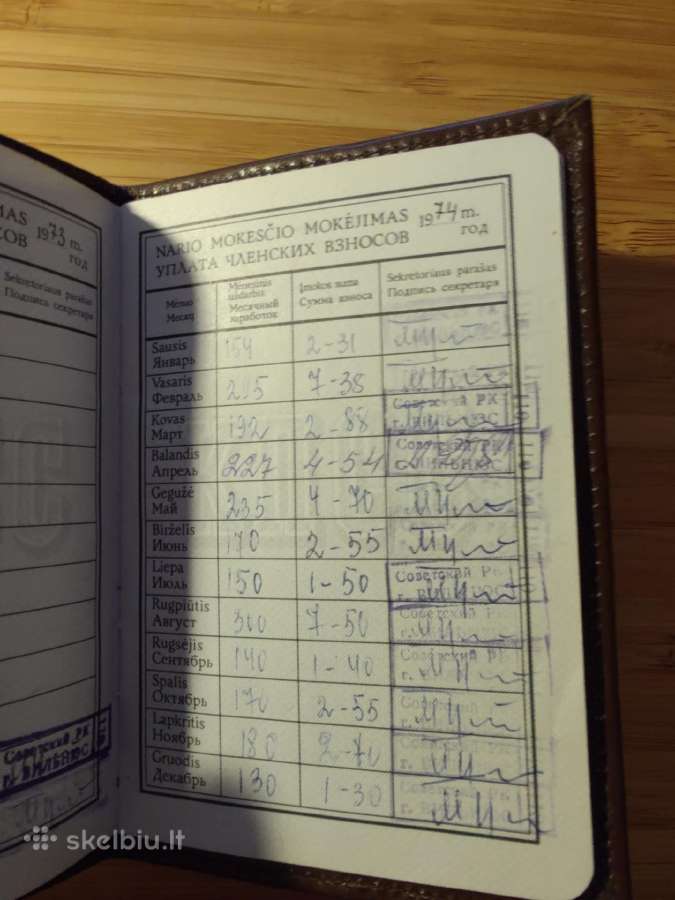 MAS 1973 m.
СОВ год
Sekretoriaus parašas
Подпись секретаря
Советский РК
г. ВИЛЬНЮС
NARIO MOKESČIO MOKĖJIMAS 1974 m.
УПЛАТА ЧЛЕНСКИХ ВЗНОСОВ год
Mėnuo
Месяц
Mėnesinis
uždarbis
Месячный
заработок
Įmokos suma
Сумма взноса
Sekretoriaus parašas
Подпись секретаря
Sausis
Январь 154 2-31
Vasaris
Февраль 295 7-38
Kovas
Март 192 2-88 Советский РК
г. ВИЛЬНЮС
Balandis
Апрель 227 4-54 Советский РК
г. ВИЛЬНЮС
Gegužė
Май 235 4-70
Birželis
Июнь 170 2-55
Liepa
Июль 150 1-50 Советский РК
г. ВИЛЬНЮС
Rugpiūtis
Август 300 7-50 Советский РК
Rugsėjis
Сентябрь 140 1-40 Советский РК
Spalis
Октябрь 170 2-55 Советский РК
Lapkritis
Ноябрь 180 2-70 Советский РК
Gruodis
Декабрь 130 1-30 Советский РК
skelbiu.lt